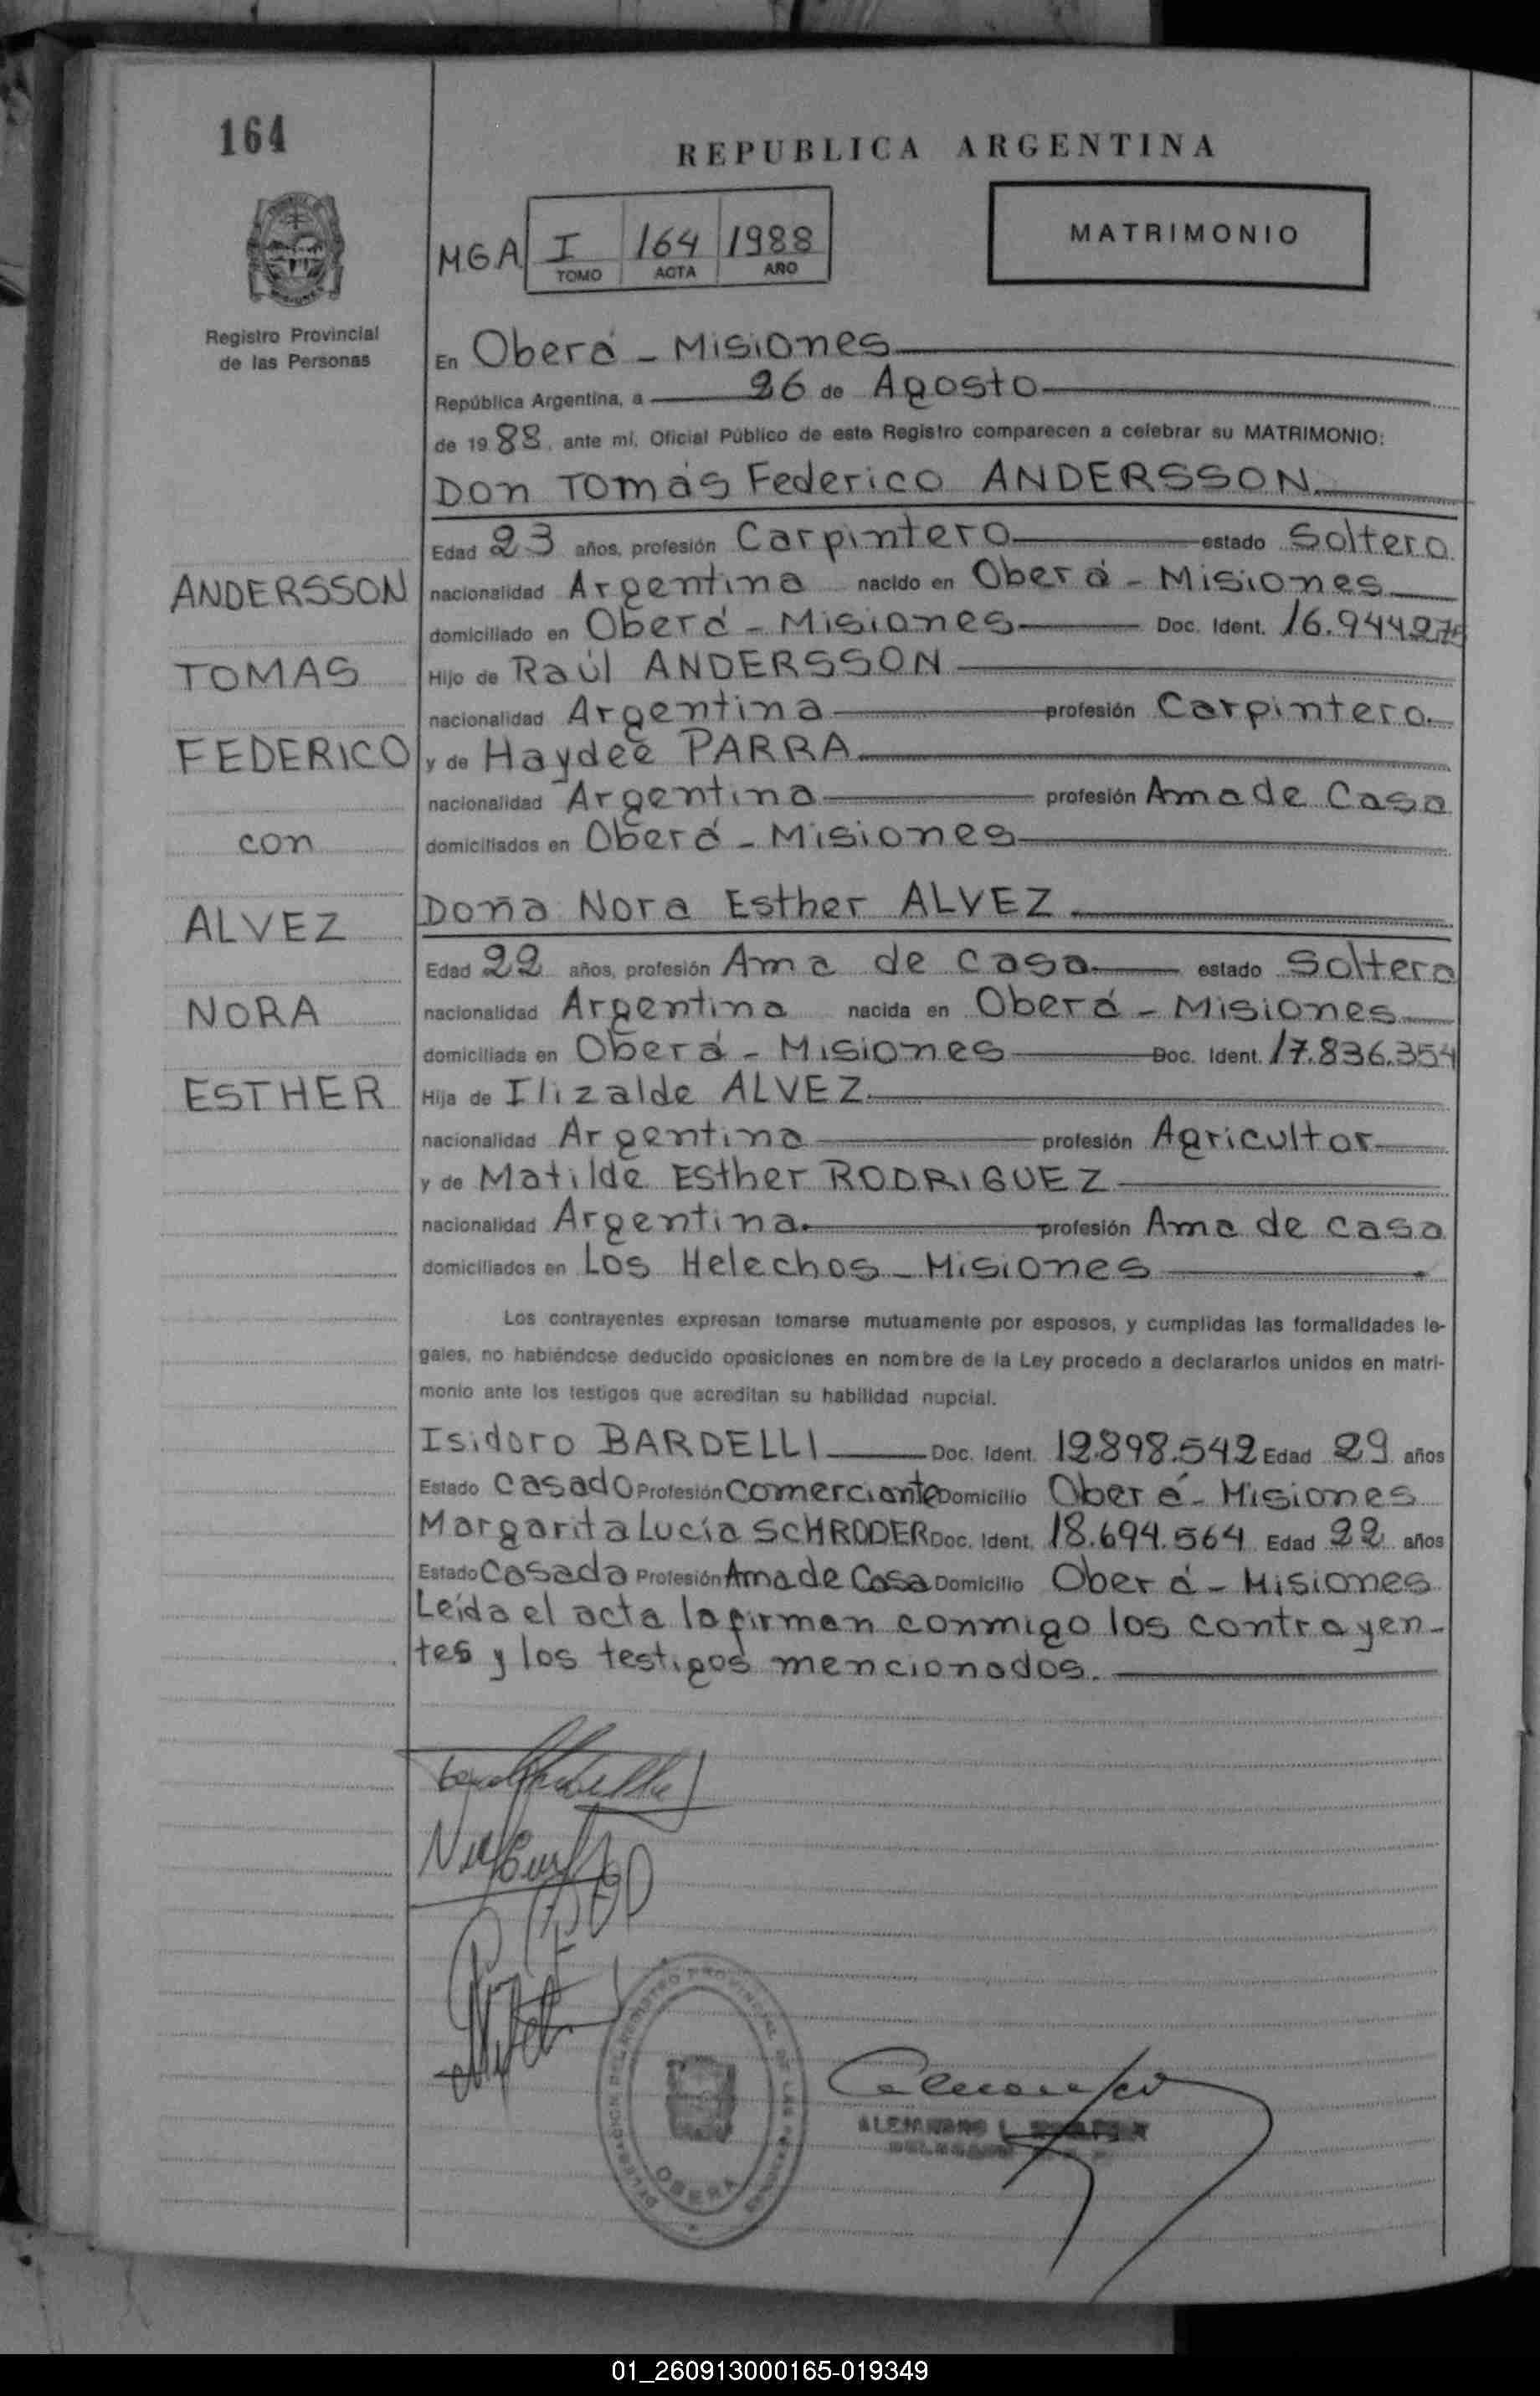 164
REPUBLICA ARGENTINA
MATRIMONIO
MGA I 164 1988
TOMO ACTA AÑO
Registro Provincial
de las Personas
En Oberá - Misiones
República Argentina, a 26 de Agosto
de 1988, ante mí, Oficial Público de este Registro comparecen a celebrar su MATRIMONIO:
Don Tomás Federico ANDERSSON
Edad 23 años, profesión Carpintero estado Soltero
ANDERSSON
nacionalidad Argentina nacido en Oberá - Misiones
domiciliado en Oberá - Misiones Doc. Ident. 16.944275
TOMAS
Hijo de Raúl ANDERSSON
nacionalidad Argentina profesión Carpintero
FEDERICO
y de Haydeé PARRA
nacionalidad Argentina profesión Ama de Casa
con
domiciliados en Oberá - Misiones
ALVEZ
Doña Nora Esther ALVEZ
Edad 22 años, profesión Ama de casa estado Soltera
NORA
nacionalidad Argentina nacida en Oberá - Misiones
domiciliada en Oberá - Misiones Doc. Ident. 17.836.354
ESTHER
Hija de Ilizalde ALVEZ
nacionalidad Argentina profesión Agricultor
y de Matilde Esther RODRIGUEZ
nacionalidad Argentina. profesión Ama de casa
domiciliados en Los Helechos - Misiones
Los contrayentes expresan tomarse mutuamente por esposos, y cumplidas las formalidades le-
gales, no habiéndose deducido oposiciones en nombre de la Ley procedo a declararlos unidos en matri-
monio ante los testigos que acreditan su habilidad nupcial.
Isidoro BARDELLI Doc. Ident. 12.898.542 Edad 29 años
Estado Casado Profesión Comerciante Domicilio Oberá - Misiones
Margarita Lucía SCHRODER Doc. Ident. 18.694.564 Edad 22 años
Estado Casada Profesión Ama de Casa Domicilio Oberá - Misiones
Leída el acta la firman conmigo los contrayen-
tes y los testigos mencionados.
DELEGACION DEL REGISTRO PROVINCIAL DE LAS PERSONAS
OBERA
ALEJANDRO L.
01_260913000165-019349